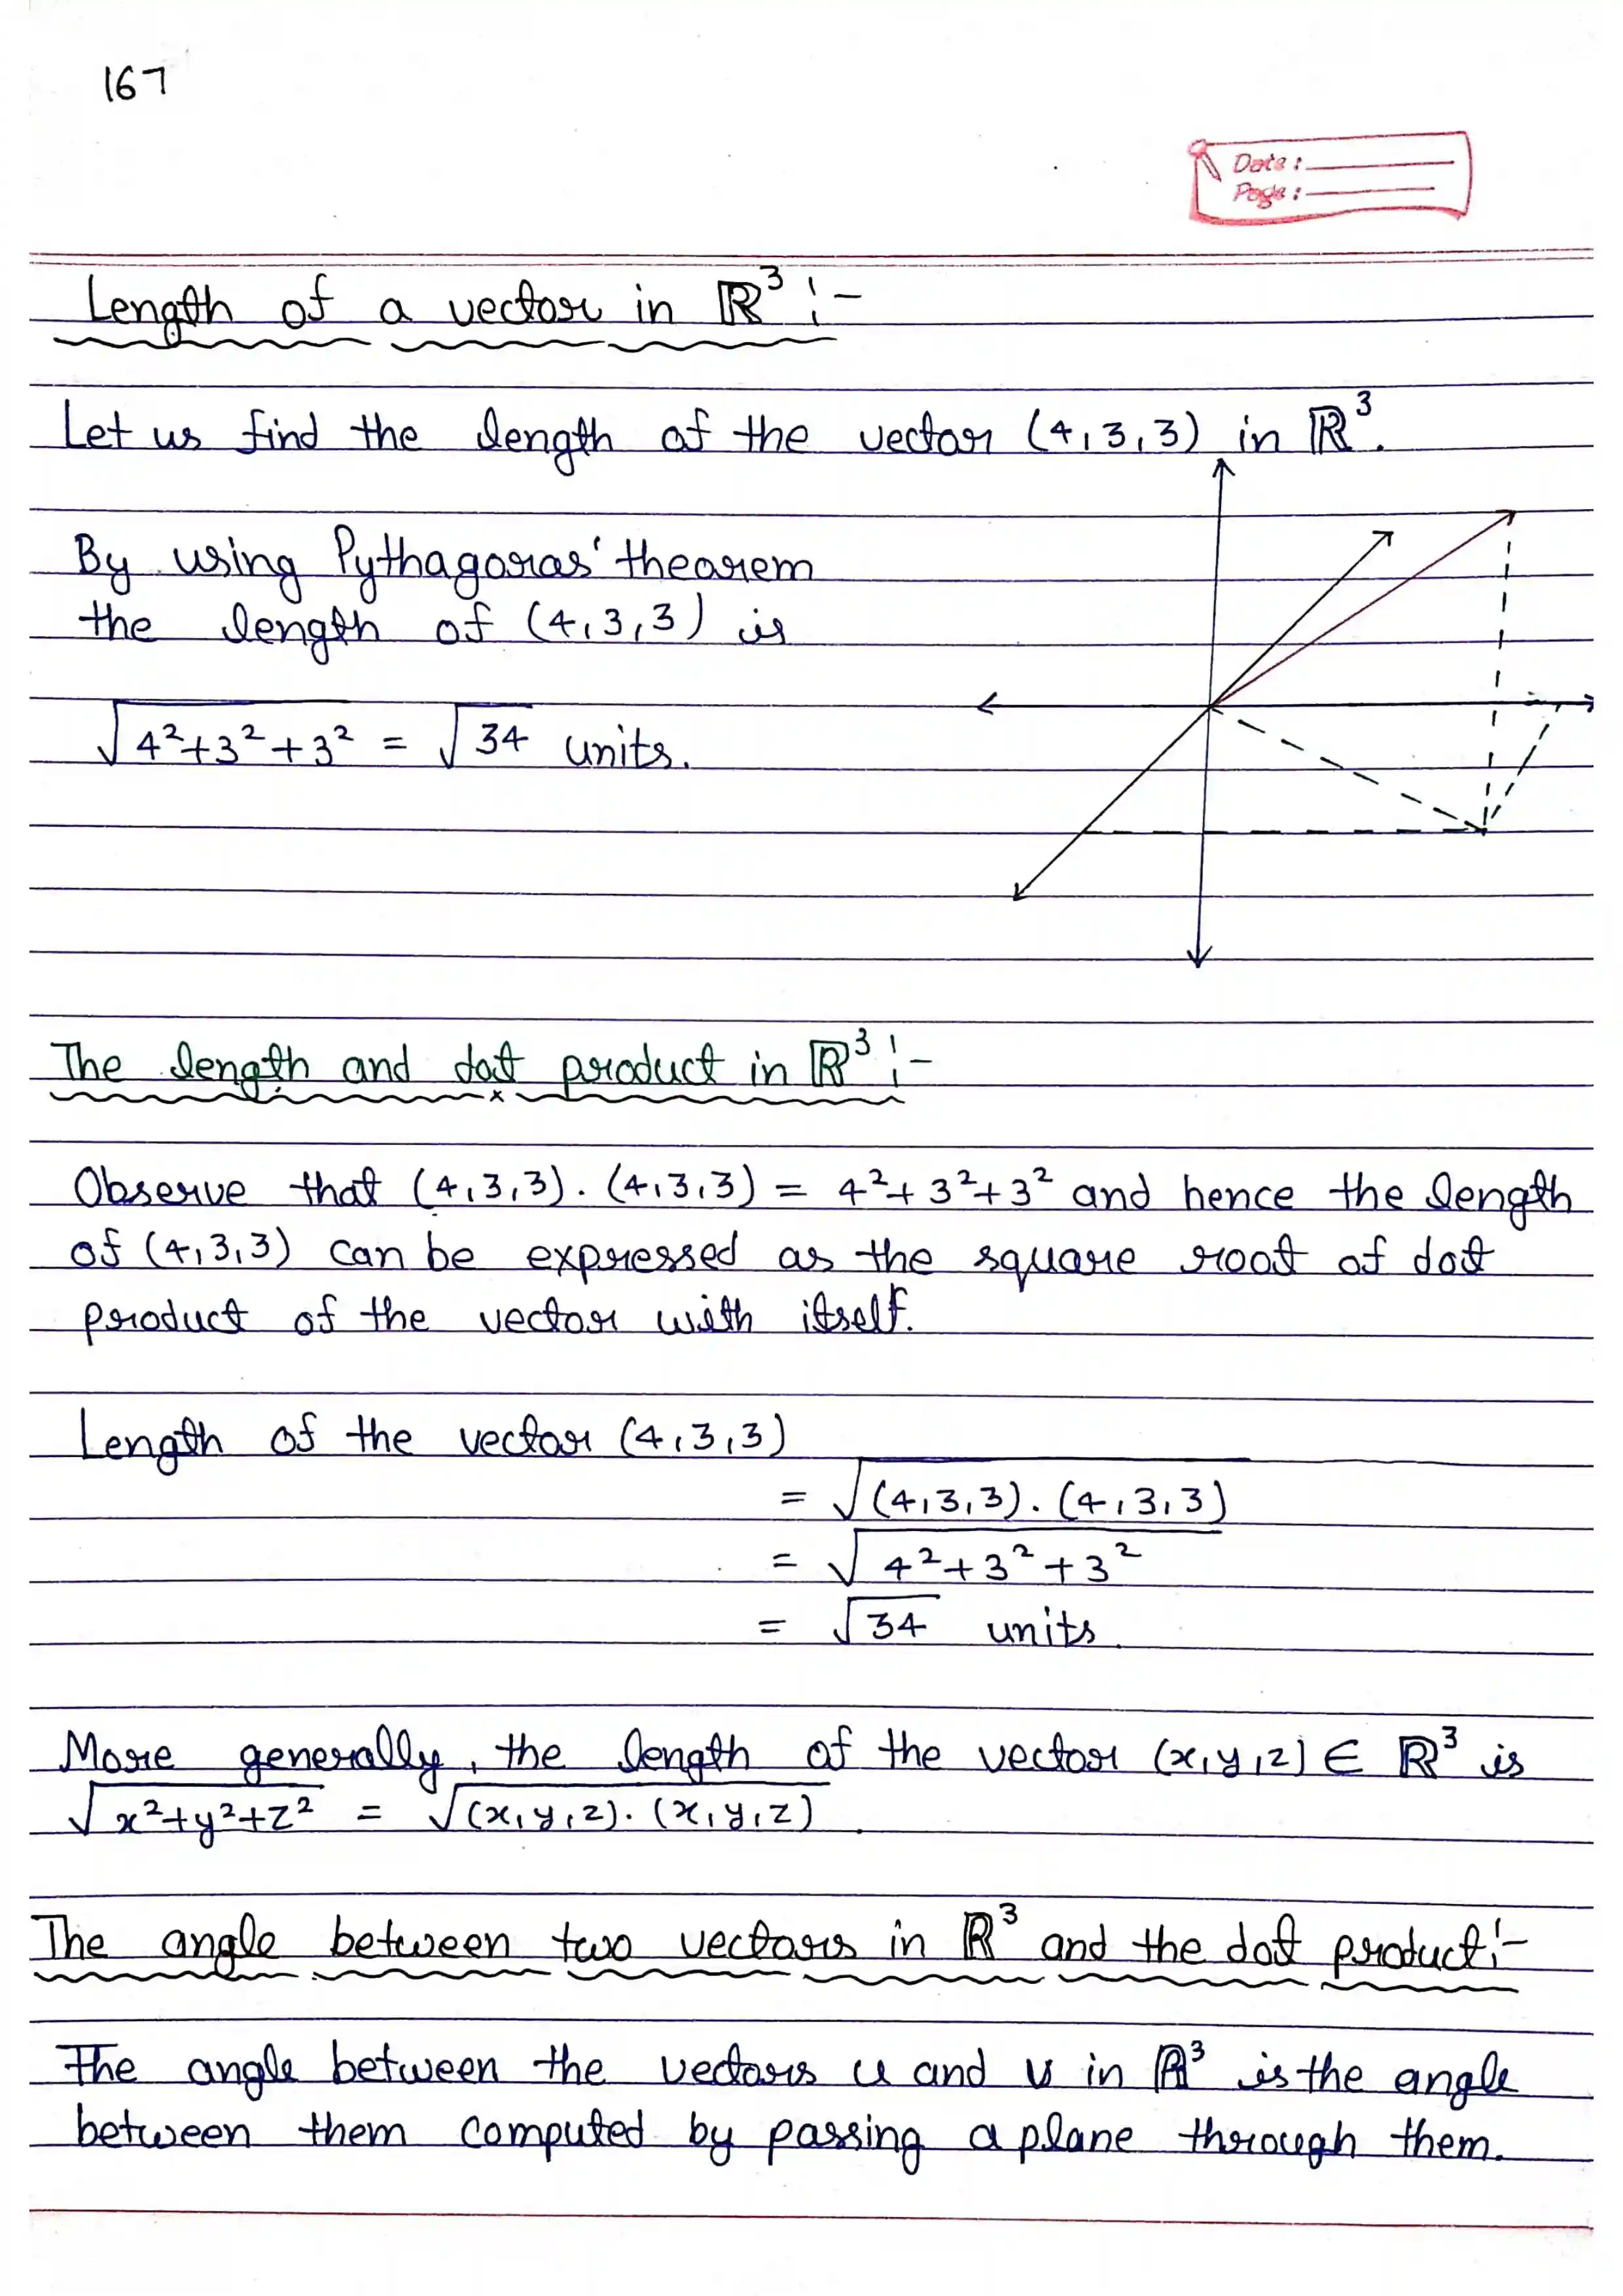 167
Date :
Page :
Length of a vector in ℝ³ :-
Let us find the length of the vector (4,3,3) in ℝ³.
By using Pythagoras' theorem
the length of (4,3,3) is
√4²+3²+3² = √34 units.
The length and dot product in ℝ³ :-
Observe that (4,3,3). (4,3,3) = 4²+3²+3² and hence the length
of (4,3,3) can be expressed as the square root of dot
product of the vector with itself.
Length of the vector (4,3,3)
= √(4,3,3). (4,3,3)
= √4²+3²+3²
= √34 units.
More generally, the length of the vector (x,y,z) ∈ ℝ³ is
√x²+y²+z² = √(x,y,z). (x,y,z) .
The angle between two vectors in ℝ³ and the dot product :-
The angle between the vectors u and v in ℝ³ is the angle
between them computed by passing a plane through them.